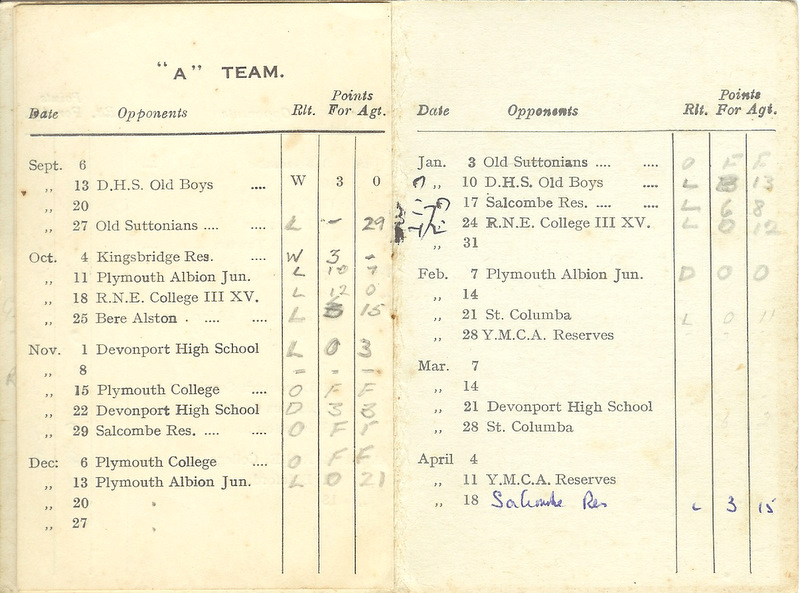 "A" TEAM.
Points
Date Opponents Rlt. For Agt.
Sept. 6
,, 13 D.H.S. Old Boys .... W 3 0
,, 20
,, 27 Old Suttonians .... .... L - 29
Oct. 4 Kingsbridge Res. .... W 3 -
,, 11 Plymouth Albion Jun. L 10 7
,, 18 R.N.E. College III XV. L 12 0
,, 25 Bere Alston . .... .... L 15
Nov. 1 Devonport High School L 0 3
,, 8 - - -
,, 15 Plymouth College .... O F F
,, 22 Devonport High School D 3 3
,, 29 Salcombe Res. .... .... O F F
Dec: 6 Plymouth College .... O F F
,, 13 Plymouth Albion Jun. L 0 21
,, 20
,, 27
Points
Date Opponents Rlt. For Agt.
Jan. 3 Old Suttonians .... .... O F F
,, 10 D.H.S. Old Boys .... L 13
,, 17 Salcombe Res. .... .... L 6 8
,, 24 R.N.E. College III XV. L 0 12
,, 31
Feb. 7 Plymouth Albion Jun. D 0 0
,, 14
,, 21 St. Columba L 0 11
,, 28 Y.M.C.A. Reserves
Mar. 7
,, 14
,, 21 Devonport High School
,, 28 St. Columba
April 4
,, 11 Y.M.C.A. Reserves
,, 18 Salcombe Res L 3 15